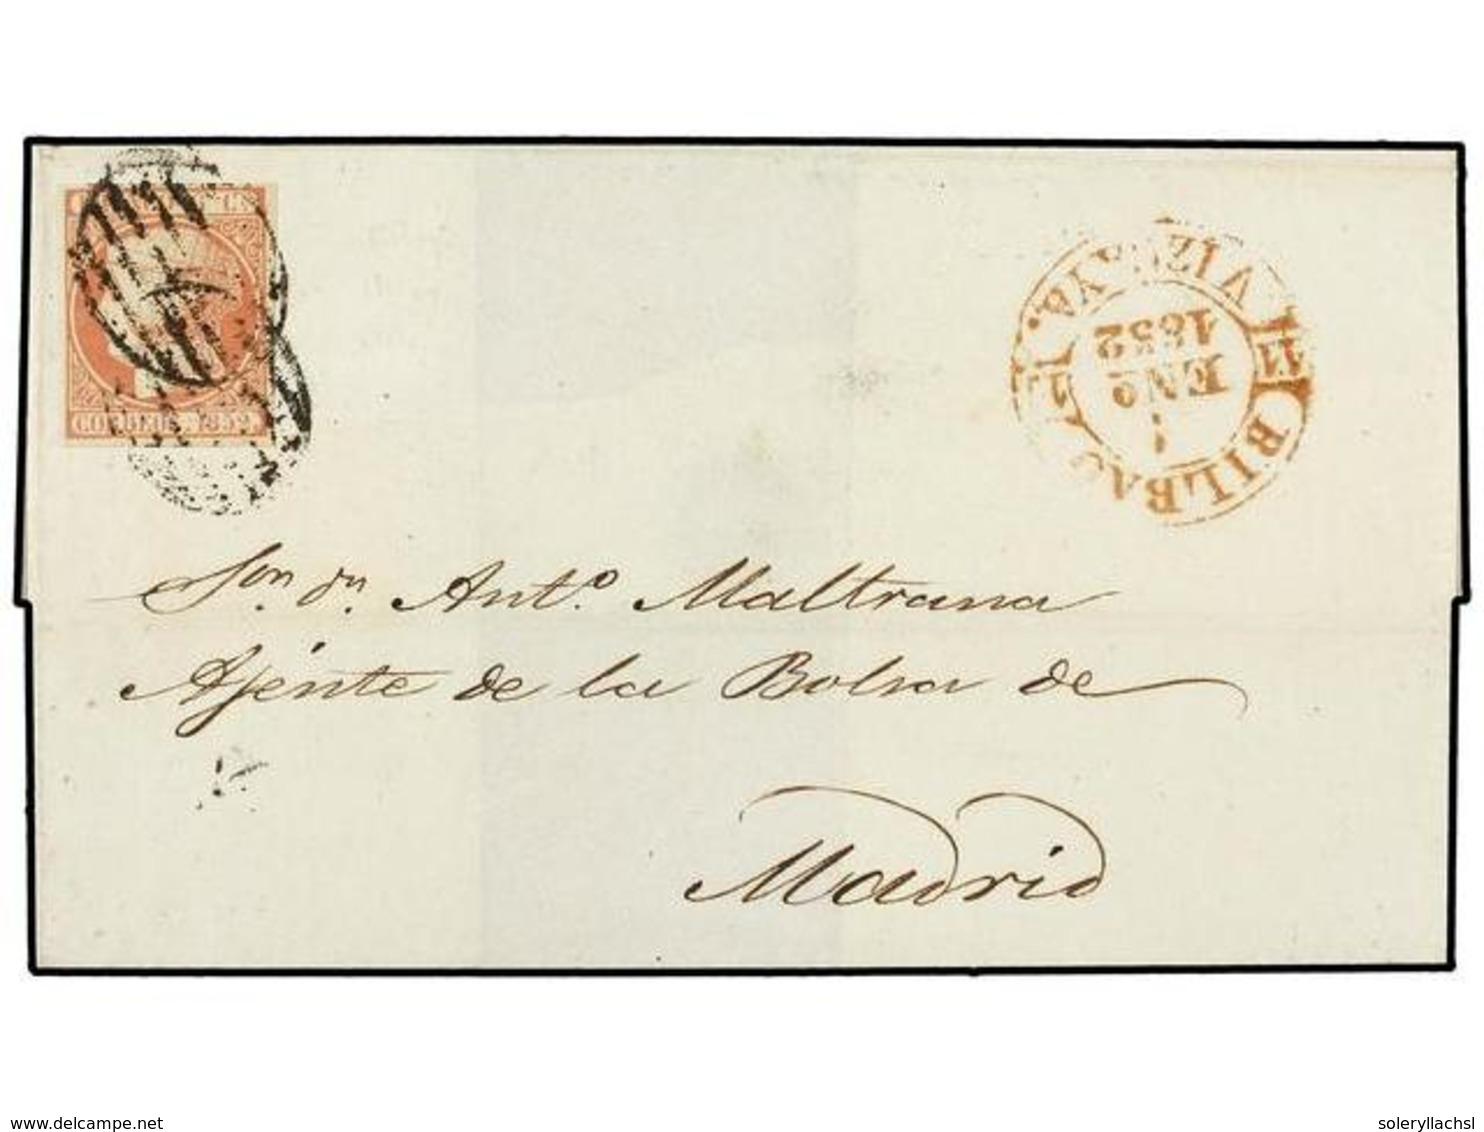 CORREOS 1852
BILBAO
VIZCAYA.
11
1
ENO
1852
Sor. dn. Anto. Maltrana
Ajente de la Bolsa de
Madrid
www.delcampe.net
soleryllachsl